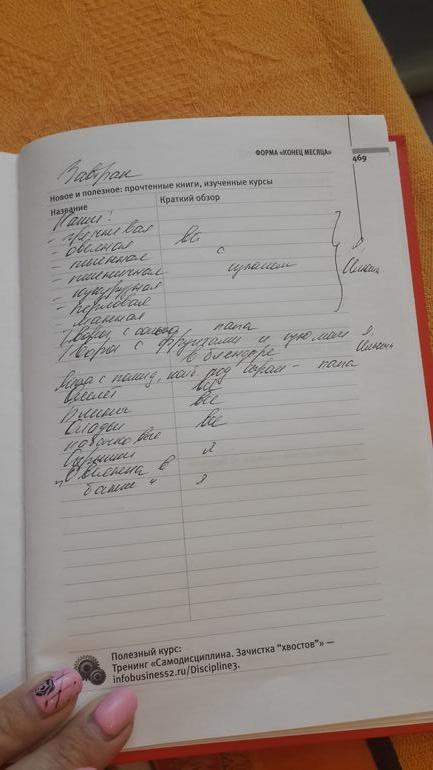 ФОРМА «КОНЕЦ МЕСЯЦА»
469
Завтрак
Новое и полезное: прочтенные книги, изученные курсы
Название Краткий обзор
Каши:
- гречневая
- овсяная все
- пшённая с
- пшеничная изюмом
- кукурузная
- перловая
манная
Творог с папа
Творог с фруктами и изюмом
в блендере
Яйца с под сыром - папа
Омлет все
Блины все
Оладьи все
Сырники я
"Овсянка в
банке" я
Полезный курс:
Тренинг «Самодисциплина. Зачистка "хвостов"» —
infobusiness2.ru/Discipline3.